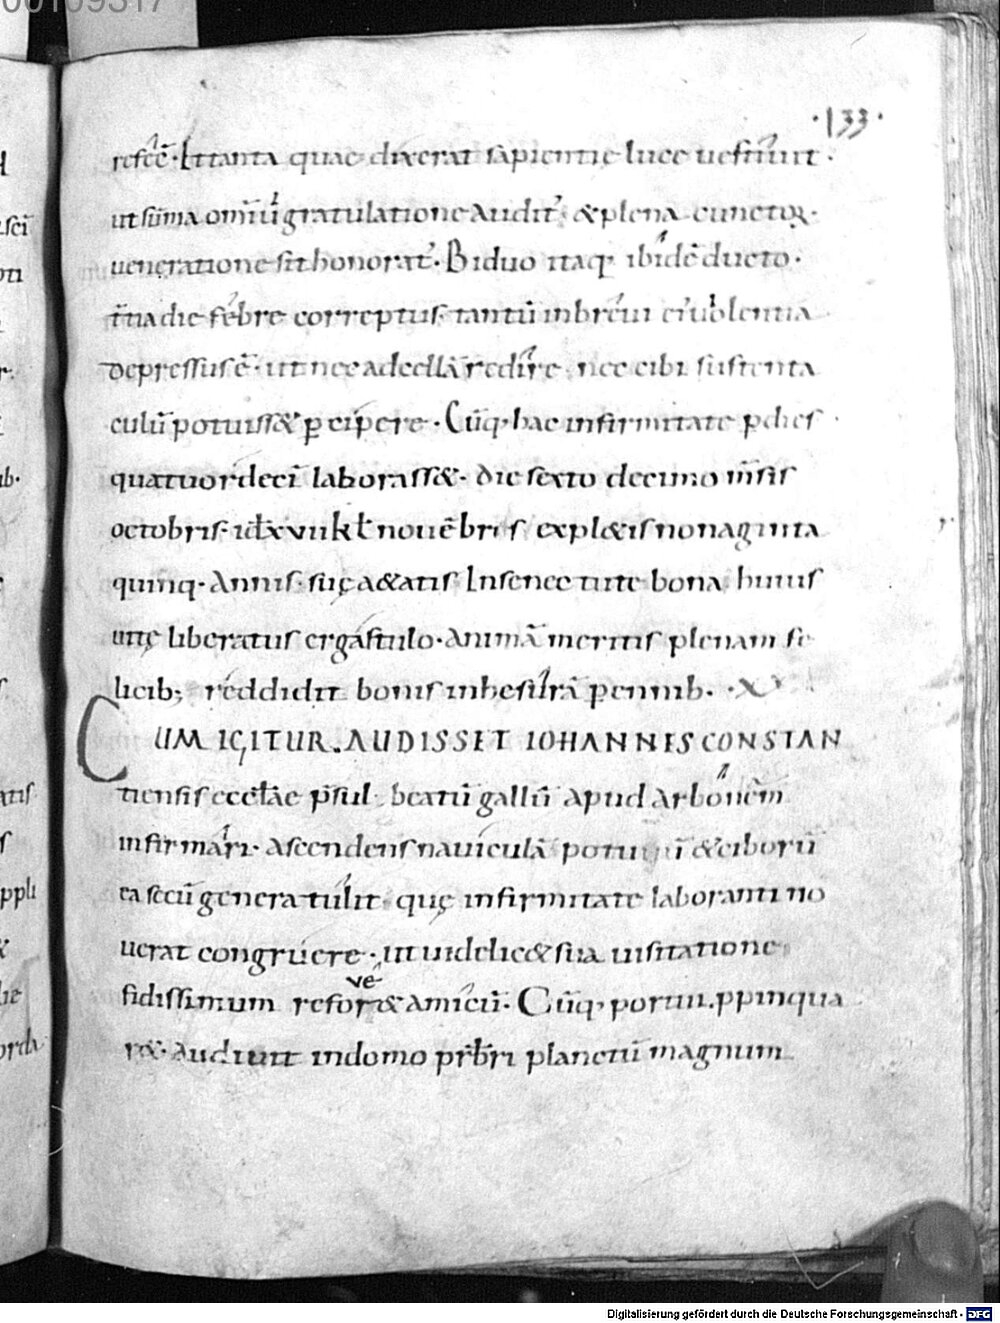 ·133·
refeč· Et tanta quae dixerat sapientię luce uestiuit·
ut sūma omniū gratulatione audit᷒· & plena cunctoꝝ·
ueneratione sit honorat᷒· Biduo itaq; ibidē ducto·
t̄tia die febre correptus tantū in breui
depressus ē· ut nec ad cellā redire· nec cibi sustenta
culū potuiss& ꝑcipere· Cūq; hac infirmitate p dies
quatuordecī laborass&· die sexto decimo m̄sis
octobris· id ē xvii kł nouēbris expl&is nonaginta
quinq· annis suę a&atis· In senectute bona huius
uitę liberatus ergastulo· animā meritis plenam fe
licib; reddidit bonis
CUM IGITUR AUDISSET IOHANNES CONSTAN
tiensis eccłae p̄sul· beatū gallū apud arbonēm
infirmari· ascendens nauiculā & ciborū
ea secū genera tulit· quę infirmitate laboranti no
uerat congruere· ut uidelic& sua uisitatione
fidissimum refou&
ve
amicū· Cūq; portui ppinqua
r&· audiuit in domo pr̄bri planctū magnum
ati
s
ppli
&
Digitalisierung gefördert durch die Deutsche Forschungsgemeinschaft - DFG